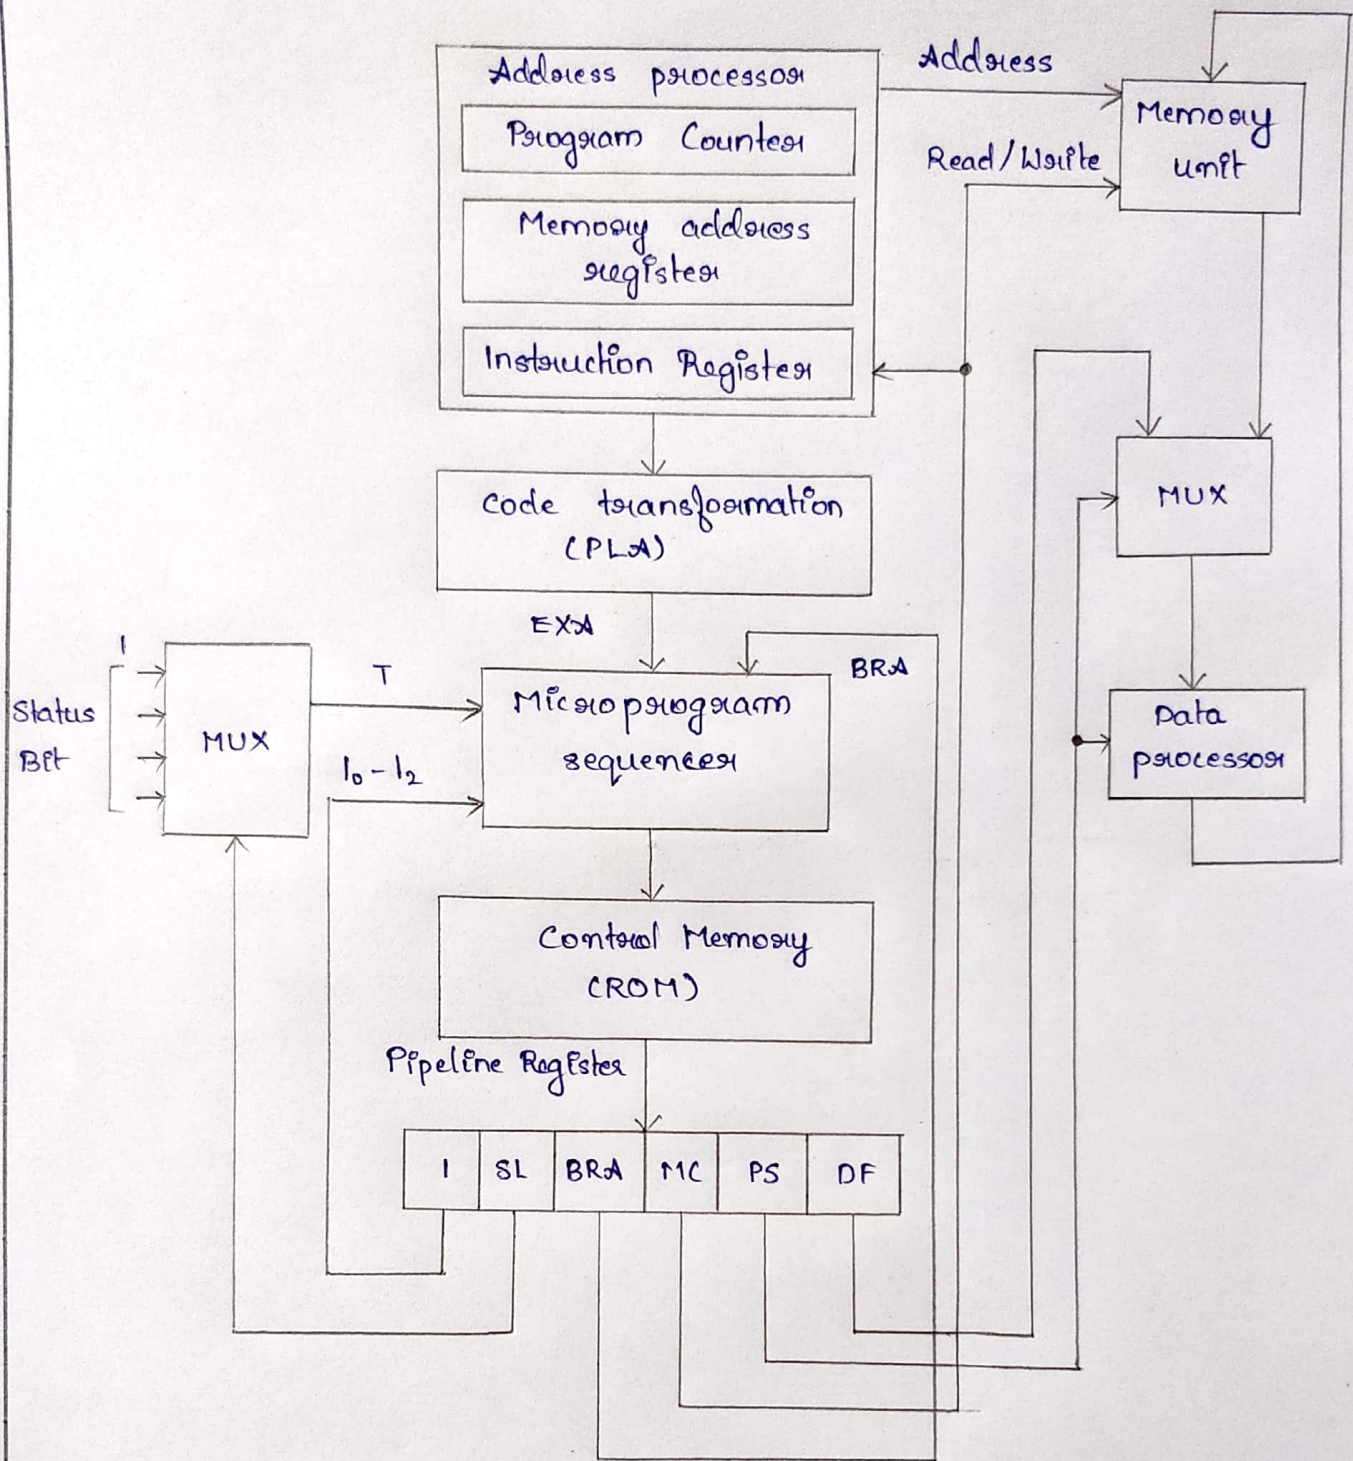 Address processor
Program Counter
Memory address
register
Instruction Register
Address
Read/Write
Memory
unit
Code transformation
(PLA)
MUX
EXA
BRA
1
Status
Bit
MUX
T
I₀ - I₂
Microprogram
sequencer
Data
processor
Control Memory
(ROM)
Pipeline Register
I SL BRA MC PS DF